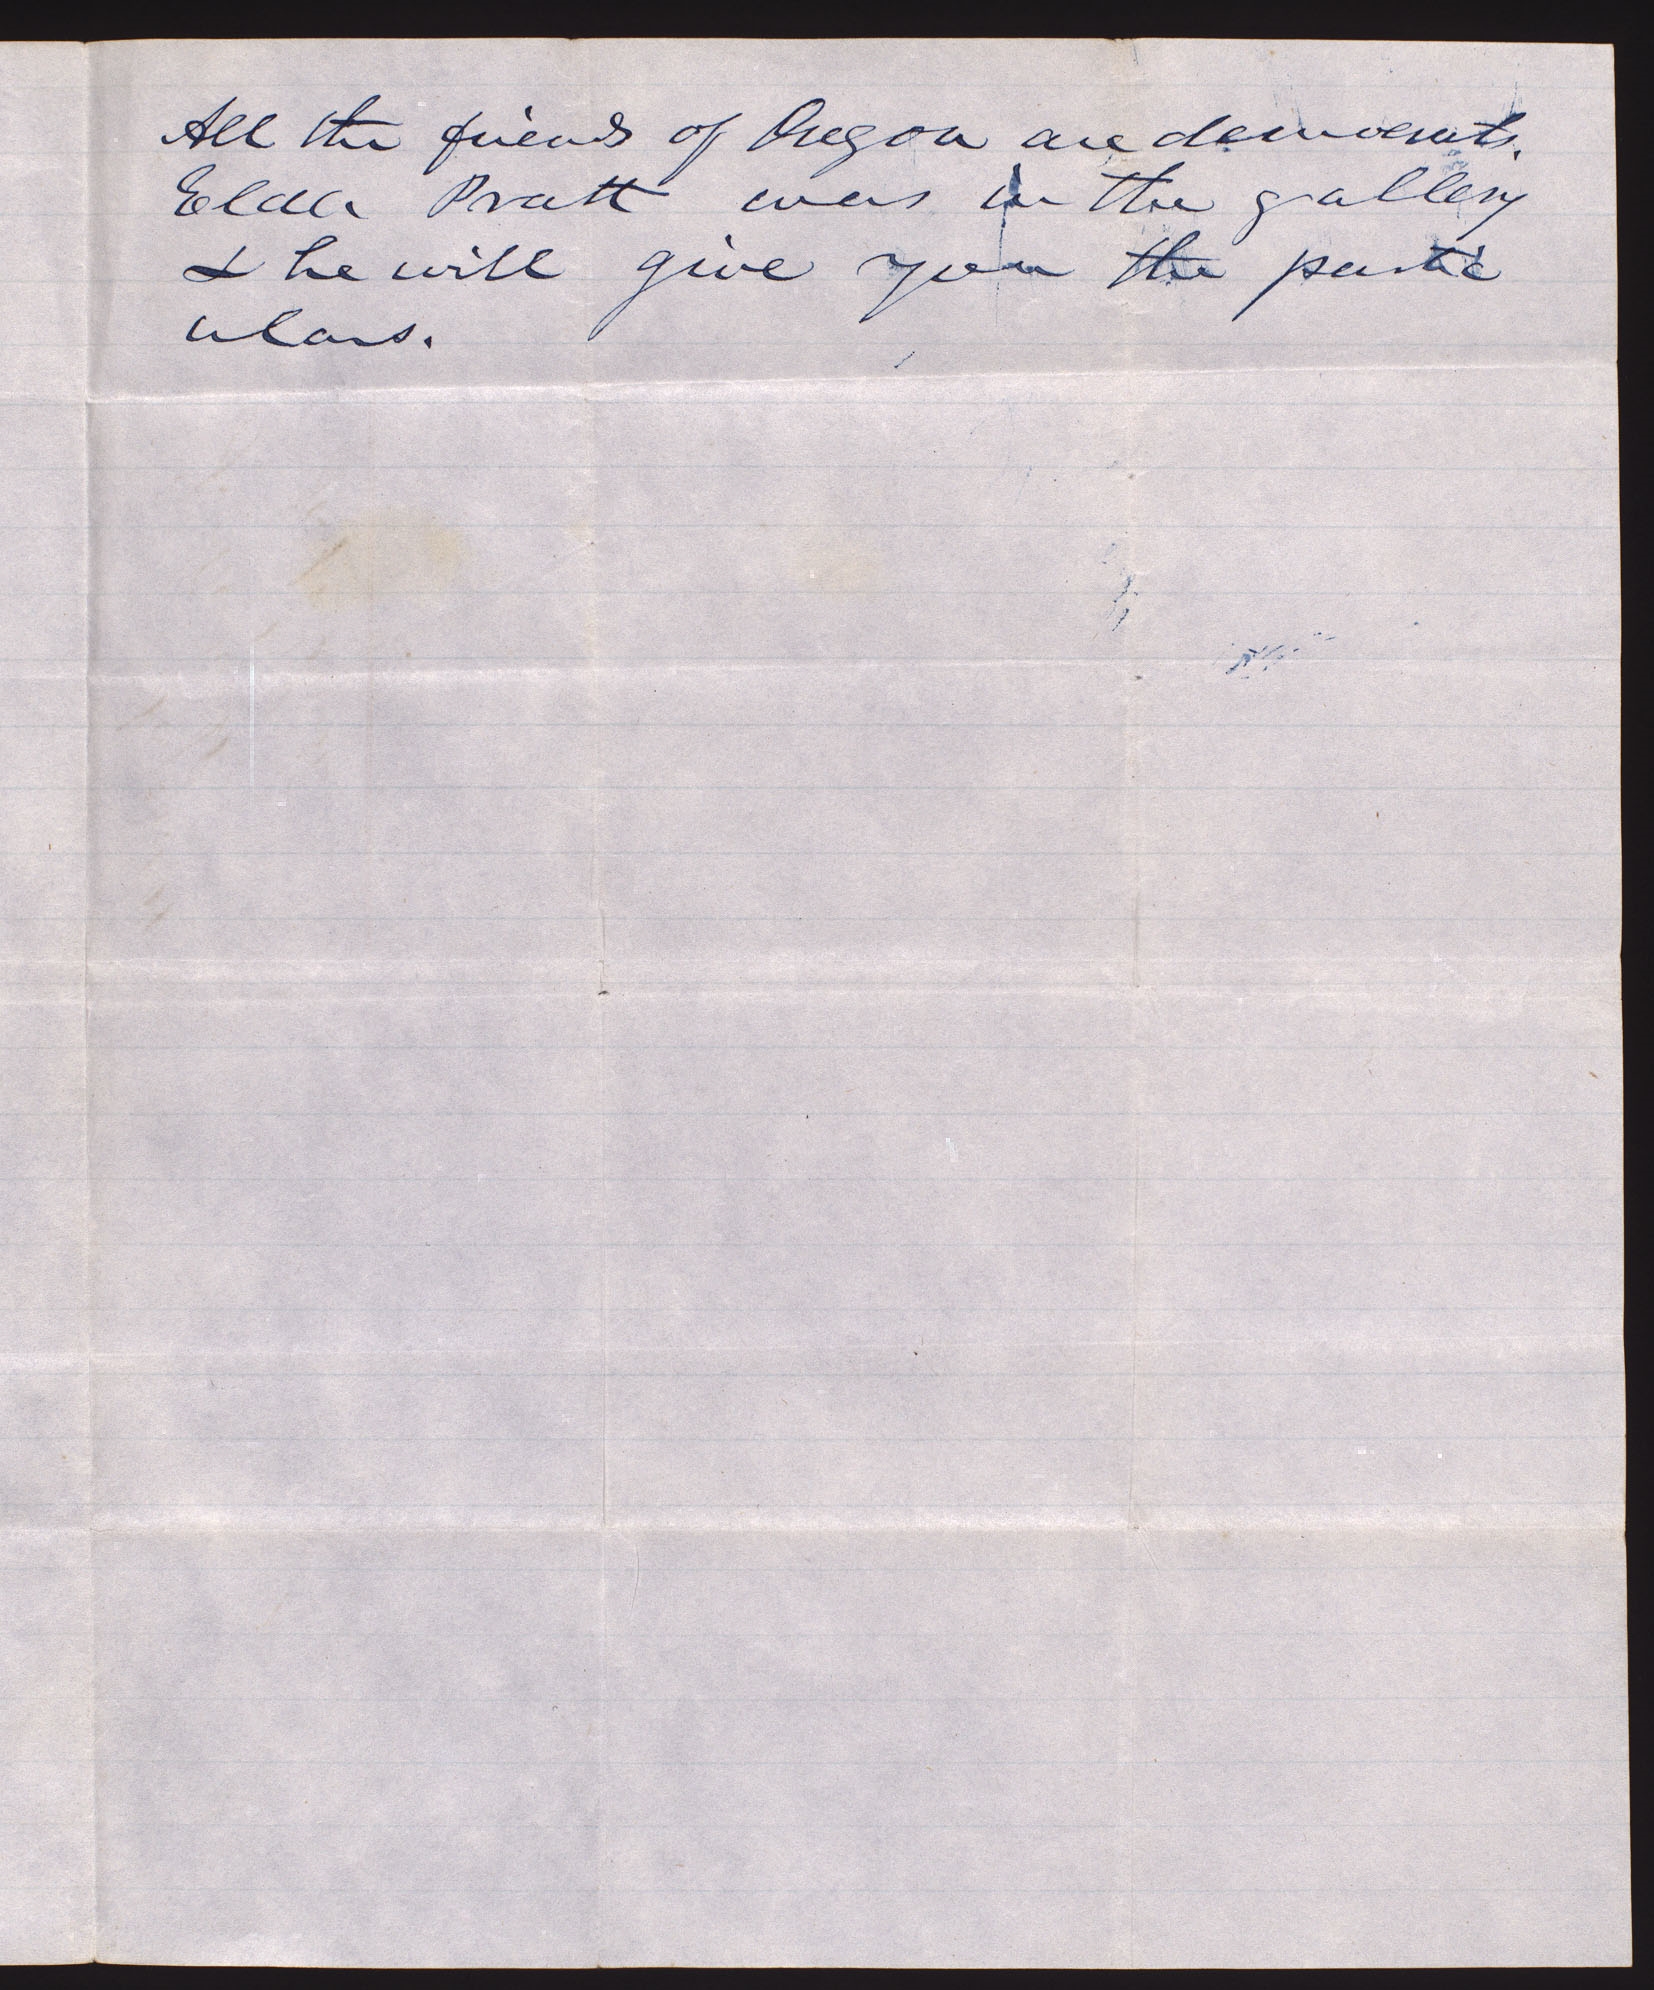 All the friends of Oregon are democrats.
Elder Pratt was in the gallery
& he will give you the partic
ulars.